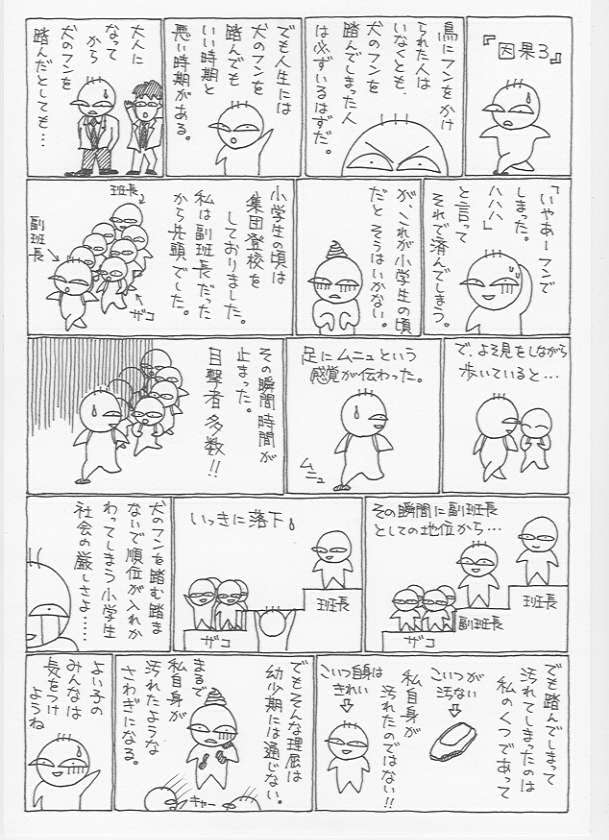 『因果3』
鳥にフンをかけ
られた人は
いなくとも、
犬のフンを
踏んでしまった人
は必ずいるはずだ。
でも人生には
犬のフンを
踏んでも
いい時期と
悪い時期がある。
大人に
なって
から
犬のフンを
踏んだとしても…
「いやあーフンで
しまった。
ハハハ」
と言って
それで済んでしまう。
が、これが小学生の頃
だとそうはいかない。
小学生の頃は
集団登校を
しておりました。
私は副班長だった
から先頭でした。
班長
副班長
ザコ
で、よそ見をしながら
歩いていると…
足にムニュという
感覚が伝わった。
ムニュ
その瞬間時間が
止まった。
目撃者多数!!
その瞬間に副班長
としての地位から…
班長
副班長
ザコ
いっきに落下。
班長
ザコ
犬のフンを踏む踏ま
ないで順位が入れか
わってしまう小学生
社会の厳しさよ……
でも踏んでしまって
汚れてしまったのは
私のくつであって
私自身が
汚れたのではない!!
こいつが
汚ない
こいつ自身は
きれい
でもそんな理屈は
幼少期には通じない。
まるで
私自身が
汚れたような
さわぎになる。
キャー
よい子の
みんなは
気をつけ
ようね